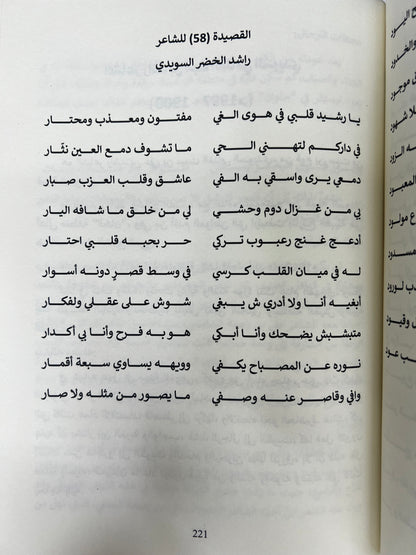 القصيدة (58) للشاعر
راشد الخضر السويدي
يا رشيد قلبي في هوى الغي مفتون ومعذب ومحتار
في داركم لتهني الحي ما تشوف دمع العين نثّار
دمعي يرى واسقي به الفي عاشق وقلب العزب صبار
بي من غزال دوم وحشي لي من خلق ما شافه اليار
أدعج غنج رعبوب تركي حر بحبه قلبي احتار
له في ميان القلب كرسي في وسط قصرٍ دونه أسوار
أبغيه أنا ولا أدري ش يبغي شوش على عقلي ولفكار
متبشبش يضحك وأنا أبكي هو به فرح وأنا بي أكدار
نوره عن المصباح يكفي وويهه يساوي سبعة أقمار
وافي وقاصر عنه وصفي ما يصور من مثله ولا صار
221